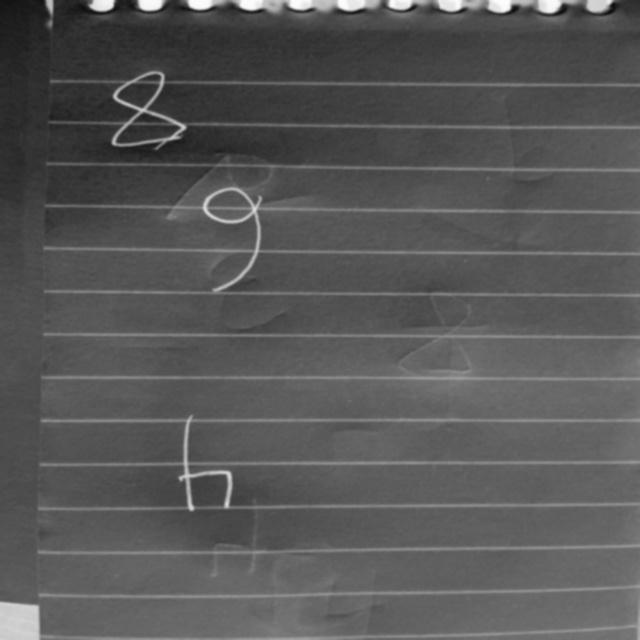 8
9
h